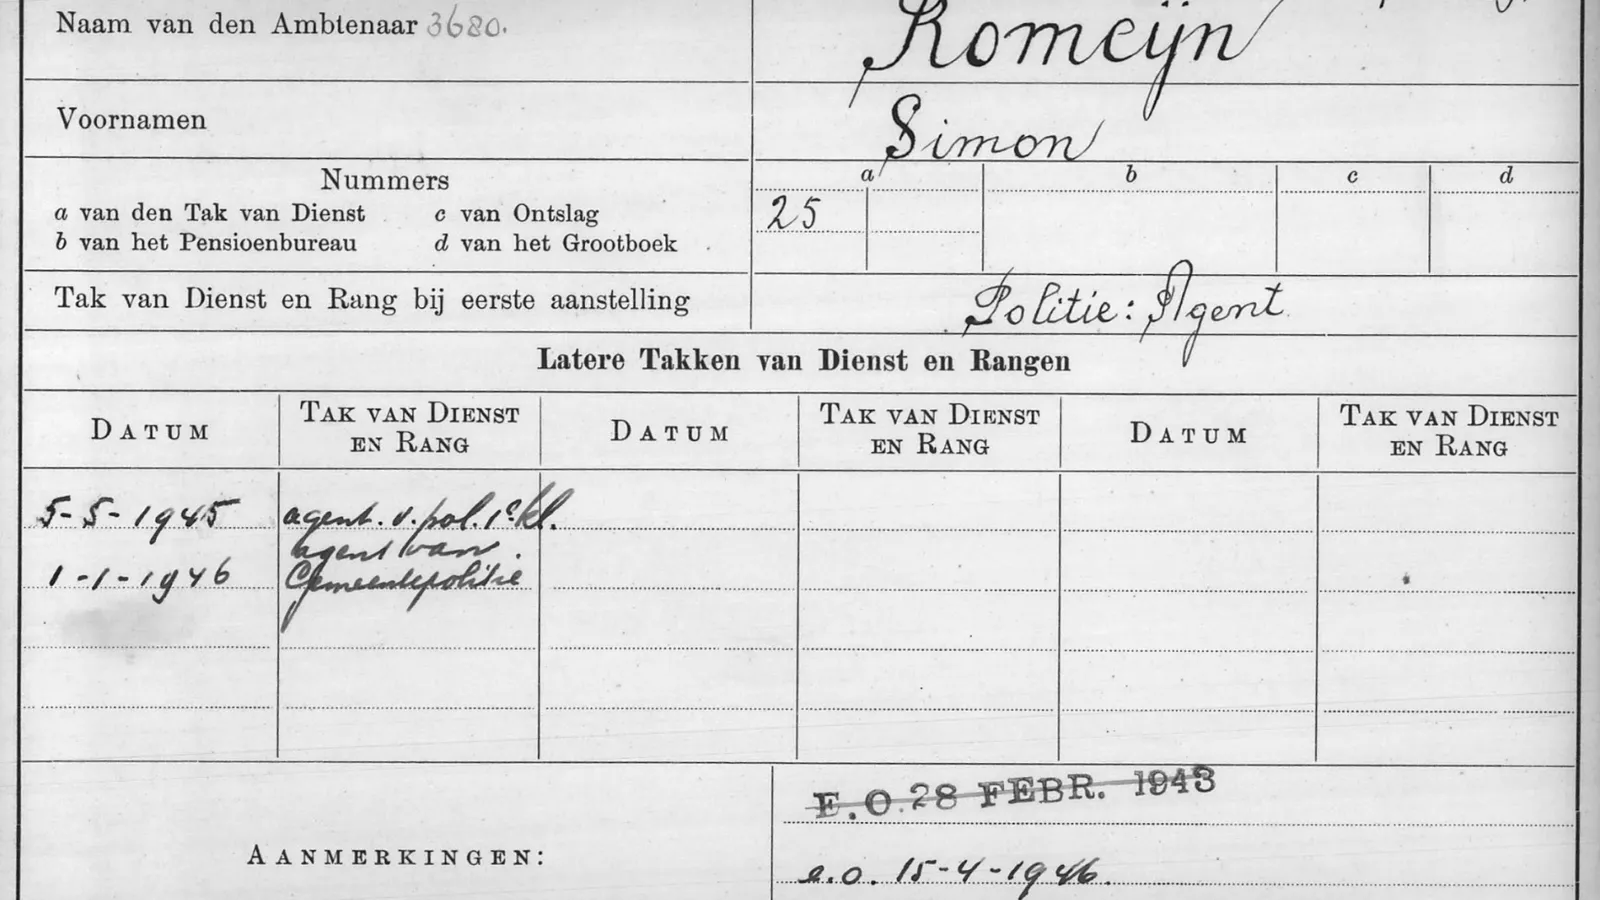 Naam van den Ambtenaar 3680. Romeijn
Voornamen Simon
Nummers
a b c d
a van den Tak van Dienst c van Ontslag 25
b van het Pensioenbureau d van het Grootboek
Tak van Dienst en Rang bij eerste aanstelling Politie: Agent
Latere Takken van Dienst en Rangen
DATUM TAK VAN DIENST EN RANG DATUM TAK VAN DIENST EN RANG DATUM TAK VAN DIENST EN RANG
5-5-1945 agent. v. pol. 1e kl.
agent van
1-1-1946 Gemeentepolitie
E.O. 28 FEBR. 1943
AANMERKINGEN:
e.o. 15-4-1946.